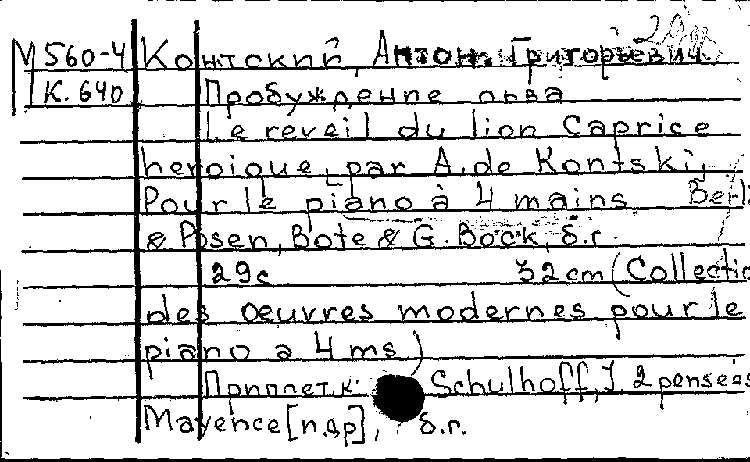 М560-4 Контский, Антон Григорьевич.
К.640 Пробуждение льва
Le reveil du lion Caprice
heroique, par A. de Kontski,
Pour le piano à 4 mains Berl
& Posen, Bote & G. Bock, б.г.
29c 32cm (Collectio
des oeuvres modernes pour le
piano a 4 ms)
Приплет.к: Schulhoff, J. 2 pensées
Mayence [и др], б.г.